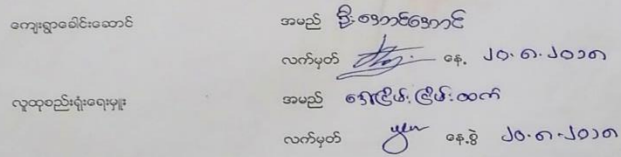 ကျေးရွာခေါင်းဆောင် အမည် ဦးအောင်အောင်
လက်မှတ် နေ့ ၂၀.၈.၂၀၁၈
လူထုစည်းရုံးရေးမှူး အမည် ဒေါ်ငြိမ်းငြိမ်းထက်
လက်မှတ် နေ့စွဲ ၂၀.၈.၂၀၁၈